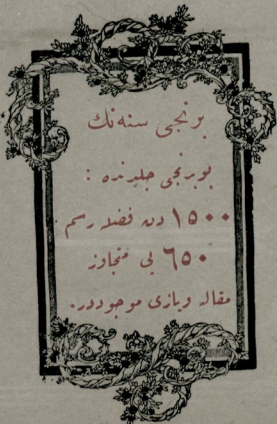 برنجی سنه‌نك
بو برنجی جلدنده :
١٥٠٠ دن فضله رسم .
٦٥٠ یی متجاوز
مقاله و یازی موجوددر.